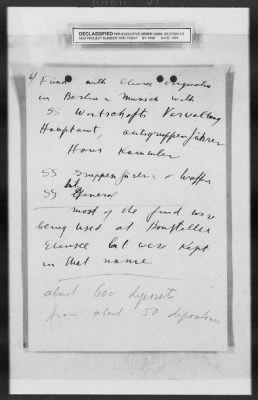 DECLASSIFIED PER EXECUTIVE ORDER 12356, SECTION 3.3
NND PROJECT NUMBER NND BY DATE
4) Fund with Ebensee
in Berlin & Munich with
SS Wirtschafts Verwaltung
Hauptamt,
Hans Kammler
SS Gruppenführer & Waffen
SS General
most of the fund were
being used at Baustelle
Ebensee but were kept
in that name
about 600 deposits
from about 50